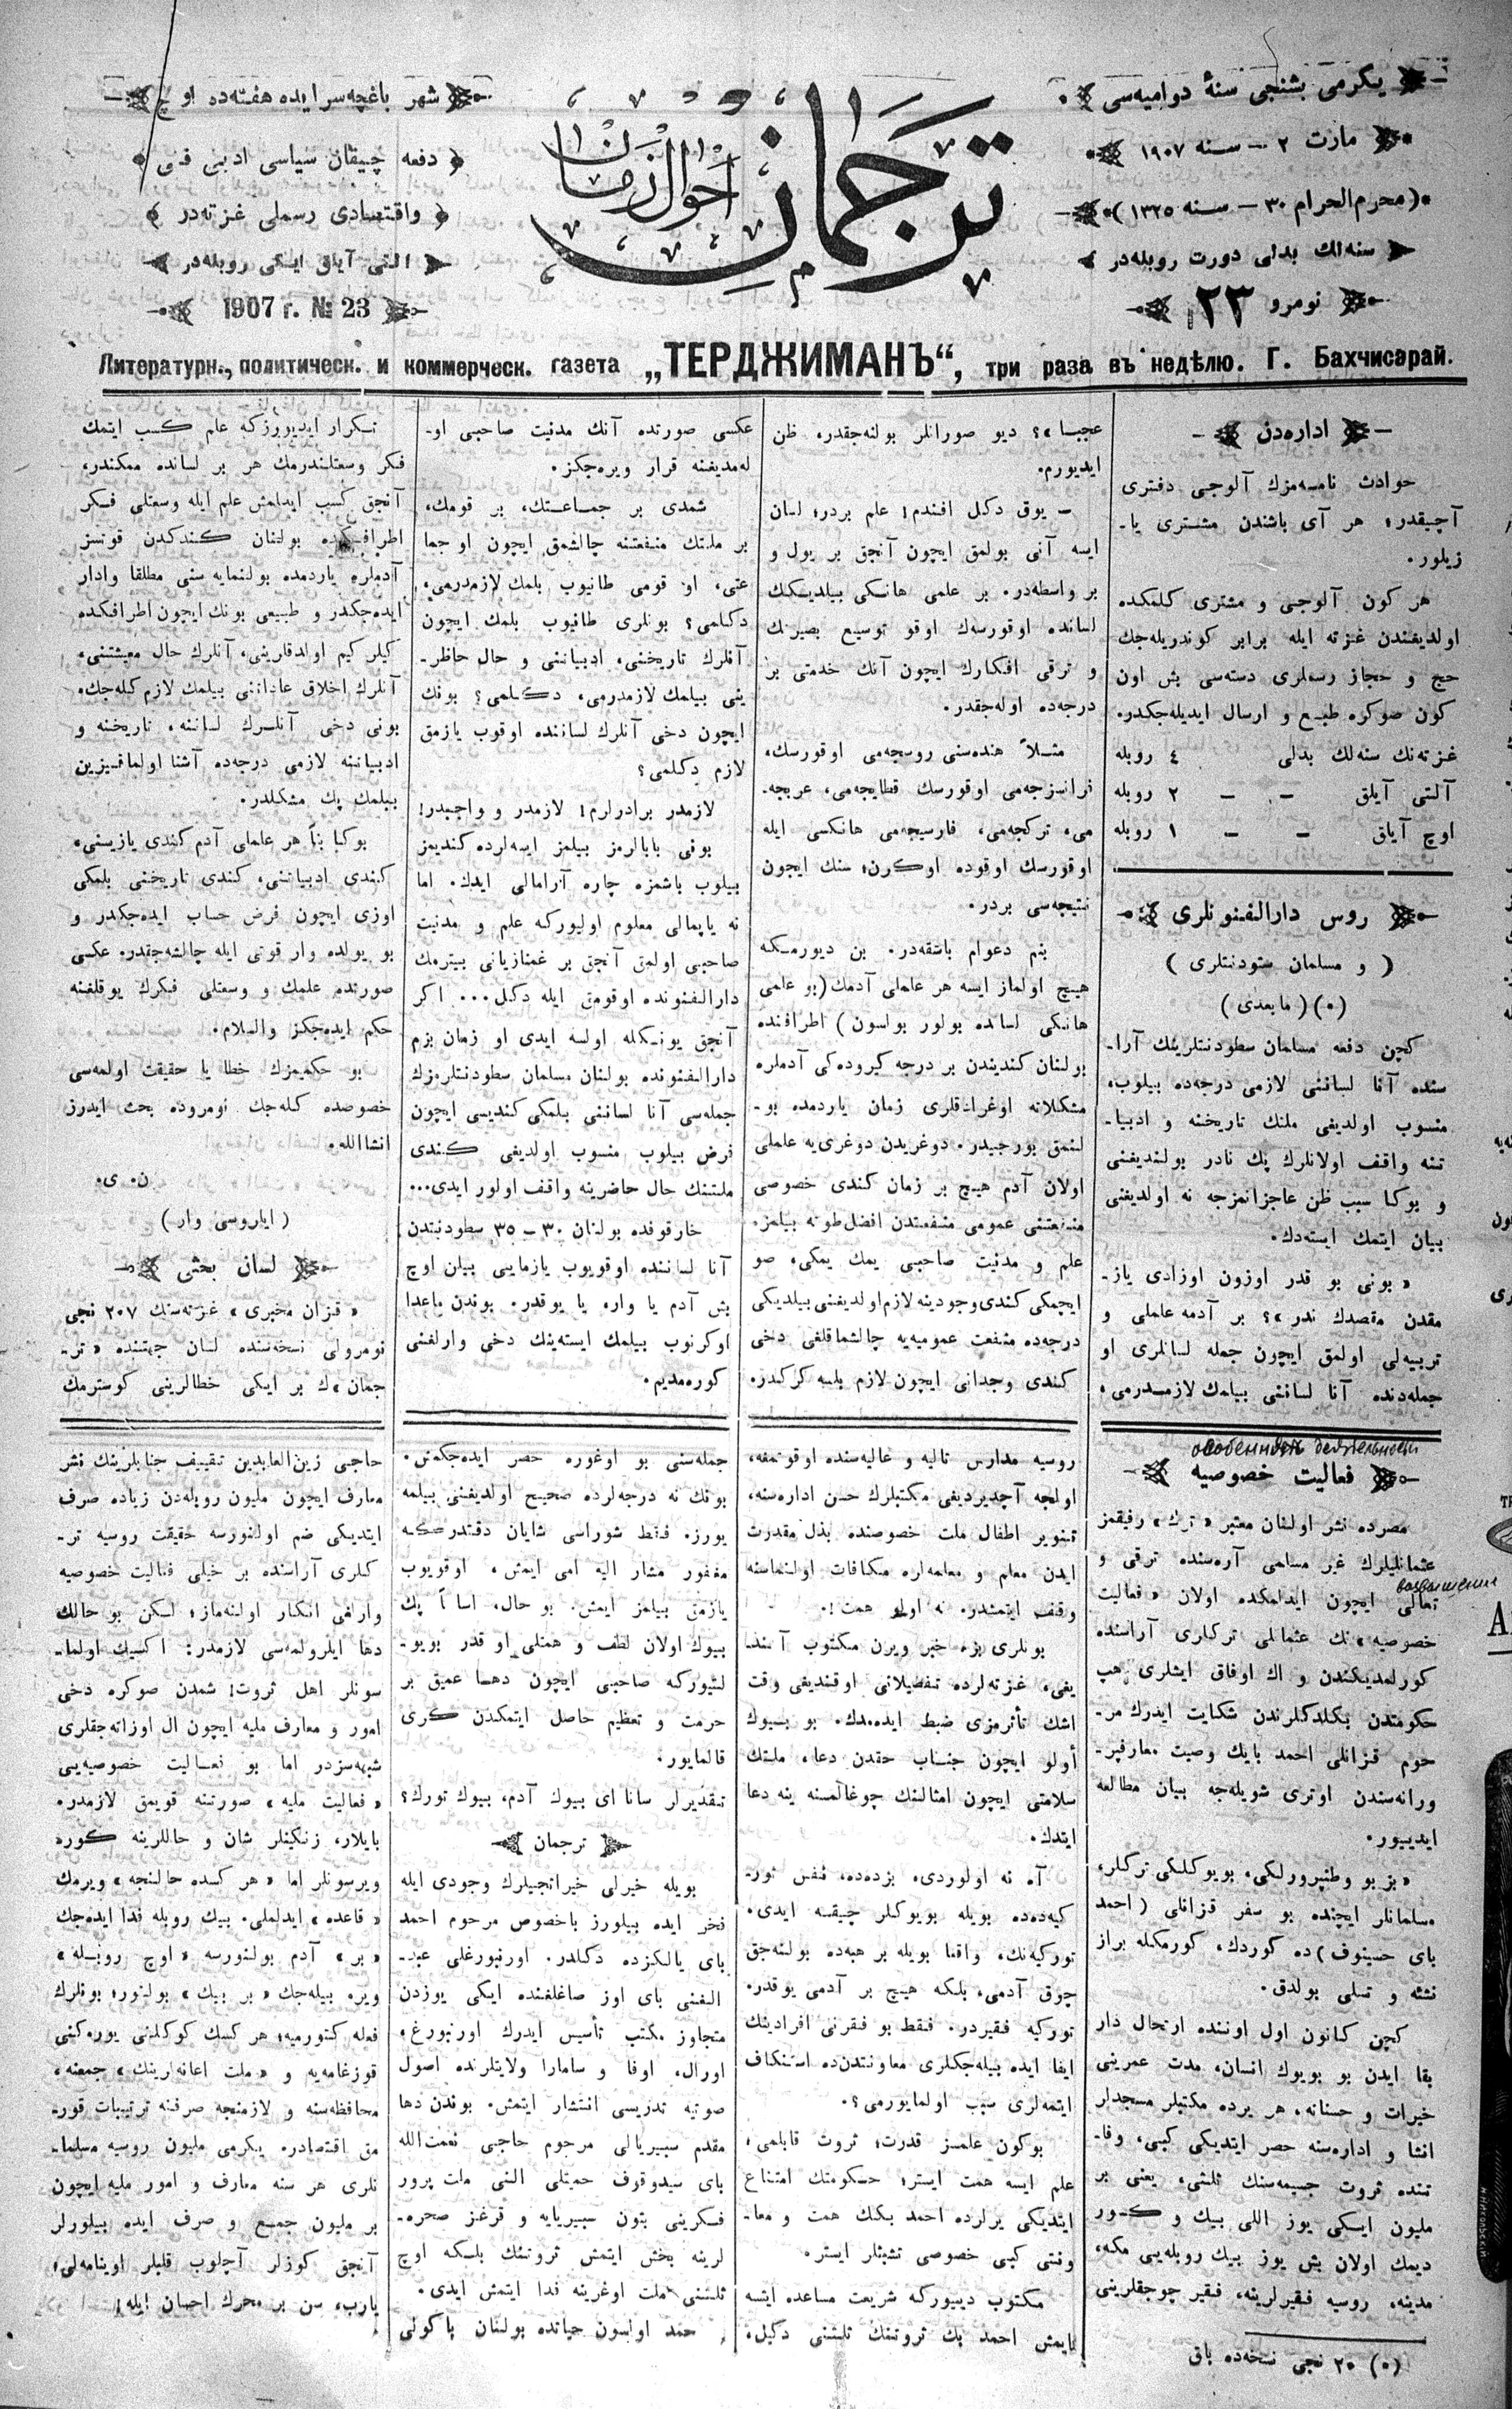 يكرمى بشنجى سنهٔ دواميه‌سى
مارت ٢ — سنه ١٩٠٧
(محرم الحرام ٣٠ — سنه ١٣٢٥)
سنه‌لك بدلى دورت روبله‌در
نومرو ٢٣
ترجمان
احوال زمان
شهر باغچه‌سرايده هفته‌ده اوچ
دفعه چيقان سياسى ادبى فنى
واقتصادى رسملى غزته‌در
التى آيلق ايكى روبله‌در
1907 г. № 23
Литературн., политическ. и коммерческ. газета „ТЕРДЖИМАНЪ“, три раза въ недѣлю. Г. Бахчисарай.
اداره‌دن
حوادث نامه‌مزك آلوجى دفترى
آچيقدر؛ هر آى باشندن مشترى يا-
زيلور.
هر كون آلوجى و مشترى كلمكده
اولديغندن غزته ايله برابر كوندريله‌جك
حج و حجاز رسملرى دسته‌سى بش اون
كون صوكره طبع و ارسال ايديله‌جكدر.
غزته‌نك سنه‌لك بدلى ٤ روبله
آلتى آيلق — — ٢ روبله
اوچ آيلق — — ١ روبله
روس دارالفنونلرى
( و مسلمان ستودنتلرى )
(*) ( مابعدى )
كچن دفعه مسلمان سطودنتلرينك آرا-
سنده آنا لساننى لازمى درجه‌ده بيلوب،
منسوب اولديغى ملتك تاريخنه و ادبيا-
تنه واقف اولانلرك پك نادر بولنديغنى
و بوكا سبب ظن عاجزانمزجه نه اولديغنى
بيان ايتمك ايسته‌دك.
« بونى بو قدر اوزون اوزادى ياز-
مقدن مقصدك ندر »؟ بر آدمه علملى و
تربيه‌لى اولمق ايچون جمله لسانلرى او
جمله‌دنده آنا لساننى بيلمك لازمدرمى،
عجبا »؟ ديو صورانلر بولنه‌جقدر، ظن
ايديورم.
— يوق دكل افندم! علم بردر؛ لسان
ايسه آنى بولمق ايچون آنجق بر يول و
بر واسطه‌در. بر علمى هانكى بيلديكك
لسانده اوقورسه‌ك اوقو توسيع بصيرتك
و ترقى افكارك ايچون آنك خدمتى بر
درجه‌ده اوله‌جقدر.
مثلاً هنده‌سنى روسجه‌مى اوقورسك،
فرانسزجه‌مى اوقورسك قطايجه‌مى، عربجه-
مى، تركجه‌مى، فارسيجه‌مى هانكسى ايله
اوقورسك اوقوده اوكرن؛ سنك ايچون
نتيجه‌سى بردر.
بنم دعوام باشقه‌در. بن ديورمكه
هيچ اولماز ايسه هر علملى آدمك (بو علمى
هانكى لسانده بولور بولسون) اطرافنده
بولنان كنديندن بر درجه كيروده‌كى آدملره
مشكلاته اوغرادقلرى زمان ياردمده بو-
لنمق بورجيدر. دوغريدن دوغرى‌يه علملى
اولان آدم هيچ بر زمان كندى خصوصى
منفعتنى عمومى منفعتدن افضل طوته بيلمز.
علم و مدنيت صاحبى يمك يمكى، صو
ايچمكى كندى وجودينه لازم اولديغنى بيلديكى
درجه‌ده منفعت عموميه‌يه چالشماقلغى دخى
كندى وجدانى ايچون لازم بلمه كركدر.
عكسى صورتده آنك مدنيت صاحبى او-
له‌مديغنه قرار ويره‌جكز.
شمدى بر جماعتك، بر قومك،
بر ملتك منفعتنه چالشمق ايچون او جما
عتى، او قومى طانيوب بلمك لازمدرمى،
دكلمى؟ بونلرى طانيوب بلمك ايچون
آنلرك تاريخنى، ادبياتنى و حال حاظر-
ينى بيلمك لازمدرمى، دكلمى؟ بونك
ايچون دخى آنلرك لساننده اوقوب يازمق
لازم دكلمى؟
لازمدر برادرلرم! لازمدر و واجبدر!
بونى بابالرمز بيلمز ايسه‌لرده كنديمز
بيلوب باشمزه چاره آرامالى ايدك. اما
نه ياپمالى معلوم اوليوركه علم و مدنيت
صاحبى اولمق آنجق بر غمنازيانى بيترمك
دارالفنونده اوقومق ايله دكل... اكر
آنجق بونكله اولسه ايدى او زمان بزم
دارالفنونده بولنان مسلمان سطودنتلرمزك
جمله‌سى آنا لساننى بلمكى كنديسى ايچون
فرض بيلوب منسوب اولديغى كندى
ملتنك حال حاضرينه واقف اولور ايدى...
خارقوفده بولنان ٣٠ — ٣٥ سطودنتدن
آنا لساننده اوقويوب يازمايى بيلن اوچ
بش آدم يا وار، يا يوقدر. بوندن ماعدا
اوكرنوب بيلمك ايسته‌ينك دخى وارلغنى
كوره‌مديم.
تكرار ايديورزكه علم كسب ايتمك
فكر وسعتلندرمك هر بر لسانده ممكندر،
آنجق كسب ايدلمش علم ايله وسعتلى فكر
اطرافكده بولنان كندكدن قوتسز
آدملره ياردمده بولنمايه سنى مطلقا وادار
ايده‌جكدر و طبيعى بونك ايچون اطرافكده
كيلر كيم اولدقلرينى، آنلرك حال معيشتنى،
آنلرك اخلاق عاداتنى بيلمك لازم كله‌جك.
بونى دخى آنلرك لساننه، تاريخنه و
ادبياتنه لازمى درجه‌ده آشنا اولماقسزين
بيلمك پك مشكلدر.
بوكا بناً هر علملى آدم كندى يازيسنى،
كندى ادبياتنى، كندى تاريخنى بلمكى
اوزى ايچون فرض حساب ايده‌جكدر و
بو يولده وار قوتى ايله چالشه‌جقدر. عكسى
صورتده علمك و وسعتلى فكرك يوقلغنه
حكم ايده‌جكز والسلام.
بو حكميمزك خطا يا حقيقت اولمه‌سى
خصوصده كله‌جك نومروده بحث ايدرز
انشاالله.
ن. ى.
(اياروسى وار)
لسان بحثى
« قزان مخبرى » غزته‌سنك ٢٠٧ نجى
نومرولى نسخه‌سنده لسان جهتنده « تر-
جمان »ك بر ايكى خطالرينى كوسترمك
فعاليت خصوصيه
مصرده نشر اولنان معتبر « ترك » رفيقمز
عثمانليلرك غير مسلمى آره‌سنده ترقى و
تعالى ايچون ايدلمكده اولان « فعاليت
خصوصيه »نك عثمانلى تركلرى آراسنده
كورلمديكندن و اك اوفاق ايشلرى هپ
حكومتدن بكلدكلرندن شكايت ايدرك مر-
حوم قزانلى احمد بايك وصيت معارفپر-
ورانه‌سندن اوترى شويله‌جه بيان مطالعه
ايدييور.
« بز بو وطنپرورلكى، بويوكلكى تركلر،
مسلمانلر ايچنده بو سفر قزانلى (احمد
باى حسينوف)ده كوردك، كورمكله براز
نشئه و تسلى بولدق.
كچن كانون اول اوننده ارتحال دار
بقا ايدن بو بويوك انسان، مدت عمرينى
خيرات و حسناته، هر يرده مكتبلر مسجدلر
انشا و اداره‌سنه حصر ايتديكى كبى، وفا-
تنده ثروت جسيمه‌سنك ثلثنى، يعنى بر
مليون ايكى يوز اللى بيك و كسور
ديمك اولان بش يوز بيك روبله‌يى مكه،
مدينه، روسيه فقيرلرينه، فقير چوجقلرينى
(*) ٢٠ نجى نسخه‌ده باق
روسيه مدارس تاليه و عاليه‌سنده اوقوتمغه،
اولجه آچديرديغى مكتبلرك حسن اداره‌سنه،
تنوير اطفال ملت خصوصنده بذل مقدرت
ايدن معلم و معلمه‌لره مكافات اولنماسنه
وقف ايتمشدر. نه اولو همت!.
بونلرى بزه خبر ويرن مكتوب آمد-
يغى، غزته‌لرده تفصيلاتى اوقنديغى وقت
اشك تأثرمزى ضبط ايده‌مدك. بو بيوك
أولو ايچون جناب حقدن دعا، ملتك
سلامتى ايچون امثالنك چوغالمسنه ينه دعا
ايتدك.
آه نه اولوردى، بزده‌ده، نفس تور-
كيه‌ده‌ده بويله بويوكلر چيقسه ايدى.
توركيه‌نك، واقفا بويله بر هبه‌ده بولنه‌جق
چوق آدمى، بلكه هيچ بر آدمى يوقدر.
توركيه فقيردر. فقط بو فقرنى افرادينك
ايفا ايده بيله‌جكلرى معاونتدن‌ده استنكاف
ايتمه‌لرى سبب اولمايورمى؟.
بوكون علمسز قدرت؛ ثروت قابلمى؛
علم ايسه همت ايستر؛ حكومتك امتناع
ايتديكى يرلرده احمد بكك همت و معا-
ونتى كبى خصوصى تشبثلر ايستر.
مكتوب دييوركه شريعت مساعده ايتسه
ايمش احمد بك ثروتنك ثلثنى دكيل،
جمله‌سنى بو اوغوره حصر ايده‌جكمش.
بونك نه درجه‌لرده صحيح اولديغنى بيلمه
يورز. فقط شوراسى شايان دقتدركه
مغفور مشار اليه امى ايمش، اوقويوب
يازمق بيلمز ايمش. بو حال، اساساً پك
بيوك اولان لطف و همتلى او قدر بويو-
لتيوركه صاحبى ايچون دها عميق بر
حرمت و تعظيم حاصل ايتمكدن كرى
قالمايور.
تقديرلر سانا اى بيوك آدم، بيوك تورك؟
ترجمان
بويله خيرلى خيرانجيلرك وجودى ايله
فخر ايده بيلورز باخصوص مرحوم احمد
باى يالكزده دكلدر. اورنبورغلى عبد-
الغنى باى اوز صاغلغنده ايكى يوزدن
متجاوز مكتب تأسيس ايدرك اورنبورغ،
اورال، اوفا و سامارا ولايتلرنده اصول
صوتيه تدريسى انتشار ايتمش. بوندن دها
مقدم سيبريالى مرحوم حاجى نعمت‌الله
باى سيدوقوف حميتلى الننى ملت پرور
فكرينى بتون سيبريايه و قرغز صحره-
لرينه بخش ايتمش ثروتنك بلكه اوچ
ثلثنى ملت اوغرينه فدا ايتمش ايدى.
حمد اولسون حياتده بولنان پاكولى
حاجى زين‌العابدين تقييف جنابلرينك نشر
معارف ايچون مليون روبله‌دن زياده صرف
ايتديكى ضم اولنورسه حقيقت روسيه تر-
كلرى آراسنده بر خيلى فعاليت خصوصيه
وارلغى انكار اولنه‌ماز؛ لكن بو حالك
دها ايلرولمه‌سى لازمدر: اكسيك اولما-
سونلر اهل ثروت! شمدن صوكره دخى
امور و معارف مليه ايچون ال اوزاته‌جقلرى
شبهه‌سزدر اما بو فعاليت خصوصيه‌يى
« فعاليت مليه » صورتنه قويمق لازمدر.
بايلار، زنكينلر شان و حاللرينه كوره
ويرسونلر اما « هر كسده حالنجه » ويرمك
« قاعده » ايدلملى. بيك روبله فدا ايده‌جك
« بر » آدم بولنورسه « اوچ روبله »
ويره بيله‌جك « بر بيك » بولنور؛ بونلرك
فعله كتورميه؛ هر كسك كوكلنى يوره‌كنى
قوزغامه‌يه و « ملت اعانه‌لرينك » جمعنه،
محافظه‌سنه و لازمنجه صرفنه ترتيبات قور-
مق اقتضادر. يكرمى مليون روسيه مسلما-
نلرى هر سنه معارف و امور مليه ايچون
بر مليون جمع و صرف ايده بيلورلر
آنجق كوزلر آچلوب قلبلر اوينامه‌لى؛
يارب، سن بر محرك احسان ايله!